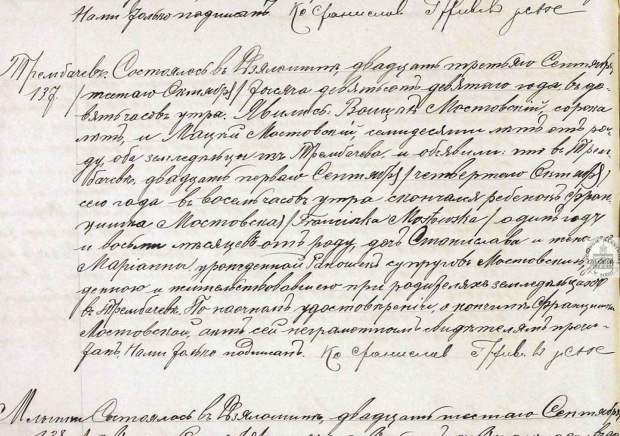 Нами только подписан. Кс Станислав
Трембачевъ. Состоялось въ Дзялошинѣ, двадцать третьяго Сентября
137. /шестаго Октября/ тысяча девятьсотъ девятаго года въ де-
вять часовъ утра. Явились: Войцѣхъ Мостовскій, сорока
лѣтъ, и Мацѣй Мостовскій, семидесяти лѣтъ отъ ро-
ду, оба земледѣльцы изъ Трембачева, и объявили: что въ Трем-
бачевѣ, двадцать перваго Сентября /четвертаго Октября/
сего года въ восемь часовъ утра скончался ребенокъ Фран-
цишка Мостовска /Franciszka Mostowska/ одинъ годъ
и восемь мѣсяцевъ отъ роду, дочь Станислава и жены
Маріанны, урожденной супруговъ Мостовскихъ
денною и жительствовавшею при родителяхъ земледѣльцахъ
въ Трембачевѣ. По наочномъ удостовѣреніи о кончинѣ Францишки
Мостовской, актъ сей неграмотнымъ свидѣтелямъ прочи-
танъ, Нами только подписанъ. Кс Станислав
Состоялось въ Дзялошинѣ, двадцать шестаго Сентября
138.